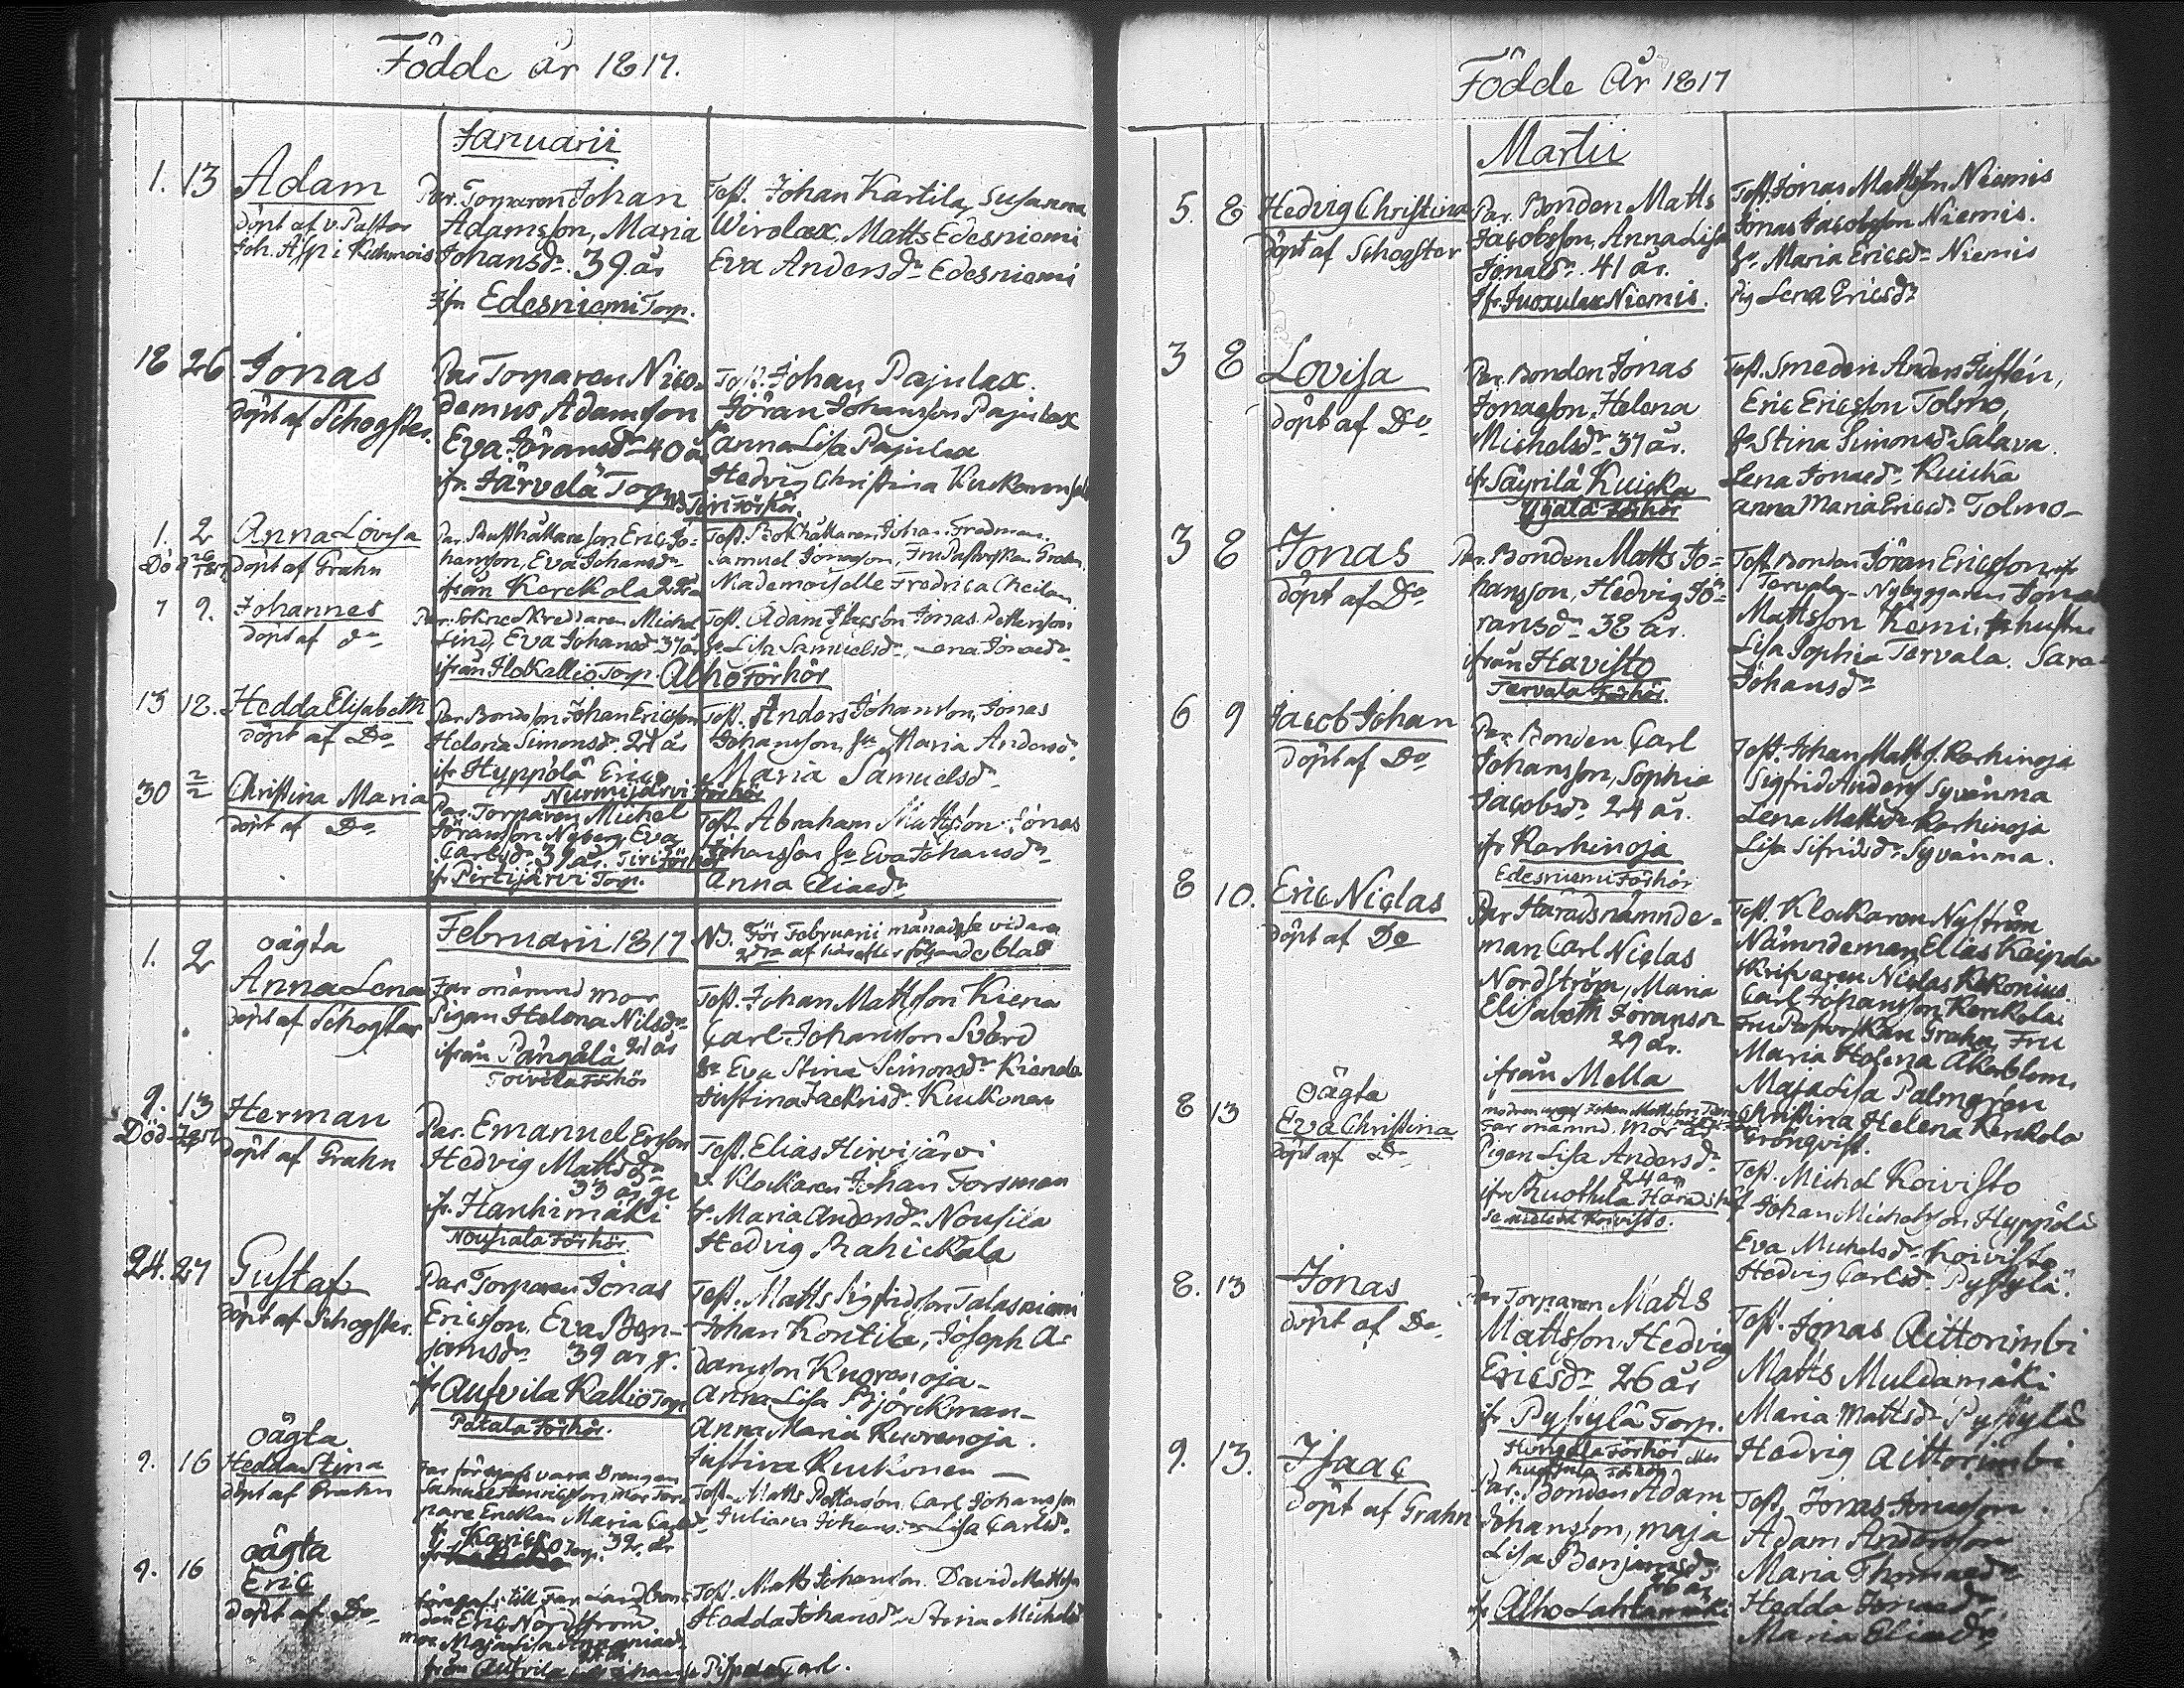 Födde år 1817.
Januarii
1. 13 Adam
döpt af v. Pastor
Joh. Asp i Kuhmois
Par. Torparen Johan
Adamsson, Maria
Johansdr. 39 år
ifr. Edesniemi Torp.
Test. Johan Kartila, Susanna
Wirolax, Matts Edesniemi
Eva Andersdr Edesniemi
18 26 Jonas
döpt af Schogster.
Par Torparen Nico-
demus Adamsson
Eva Göransdr 40 år
ifr. Järvelä Torp
Tiri Förhör.
Test. Johan Pajulax.
Jöran Johansson Pajulax
Anna Lisa Pajulax
Hedvig Christina Kuckonen
1. 2 Anna Lovisa
döpt af Grahn
Eric Jo-
hansson, Eva Johansdr
ifrån Kerckola
Test. Johan Fredman.
Samuel Jonasson,
Mademoiselle Fredrica
7 9. Johannes
döpt af do
Michel
Lind, Eva Johansdr 37 år
ifrån Ilokallio Torp. Alho Förhör
Test. Adam Jonas Pettersson
Lisa Samuelsdr, Lena Jonaedr
13 18. Hedda Elisabeth
döpt af Do
Par. Johan Ericsson
Helena Simonsdr 24 år
ifr Hyppölä Erics
Nurmijärvi Förhör
Test. Anders Johansson, Jonas
Johansson, Maria Andersdr
Maria Samuelsdr
30 2/2 Christina Maria
döpt af Do
Par. Torparen Michel
Jöransson Nyberg, Eva
Carlsdr. 39 år. Tiri Förhör
ifr Pertijärvi Torp.
Test. Abraham Mattsson Jonas
Johansson Eva Johansdr
Anna Eliaedr
Februarii 1817
NB. För Februarii månad se vidare
2dra af härefter följande blad
1. 2 oägta
Anna Lena
döpt af Schogster
Far onämnd mor
Pigan Helena Nilsdr
24 år
ifrån Pängälä
Toivila Förhör
Test. Johan Mattsson Kiena
Carl Johansson Svärd
Eva Stina Simonsdr
Justina Kuckonen
9. 13 Herman
Död
döpt af Grahn
Par. Emanuel Ersson
Hedvig Mattsdr
33 år
ifr. Hanhimäki
Nousiala Förhör
Test. Elias Hirvijärvi
v. Klockaren Johan Forsman
Maria Andersdr Nousila
Hedvig Rahickala
24. 27 Gustaf
döpt af Schogster.
Par Torparen Jonas
Ericsson, Eva Ben-
jamsdr 39 år
ifr Aufvila Kallio Torp
Patala Förhör.
Test. Matts Sigfridsson Talasniemi
Johan Kontila, Joseph A-
damsson Kuorenoja
Anna Lisa Björckman
Anna Maria Kuorenoja.
Justina Kuckonen
9. 16 oägta
Hedda Stina
döpt af Grahn
Far föregafs vara Drengen
Samuel Henricsson, mor Tor-
pare Enckan Maria Carlsdr
32 år
Test. Matts Pettersson Carl Johansson
Juliana Lisa Carlsdr.
9. 16 oägta
Eric
döpt af Do
föregafs till Far
Eric Nordström.
mor Maja Lisa
från Aufvila
Test. Matts Johansson David Mattsson
Hedda Johansdr Stina Michelsdr
Carl.
Födde År 1817
Martii
5. 8 Hedvig Christina
döpt af Schogster
Par. Bonden Matts
Jacobsson, Anna Lisa
Jonaedr. 41 år.
ifr. Niemis.
Test. Jonas Mattsson Niemis
Jonas Jacobsson Niemis.
Maria Ericsdr Niemis
Pig Lena Ericsdr
3 8 Lovisa
döpt af Do
Par. Bonden Jonas
Jonasson, Helena
Michelsdr 37 år.
ifr Säyrilä Kuicka
Test. Smeden Anders Justén,
Eric Ericsson Tolmo,
Stina Simonsdr Salava.
Lena Jonaedr Kuicka
Anna Maria Ericsdr Tolmo
3 8 Jonas
döpt af Do
Par. Bonden Matts Jo-
hansson, Hedvig Jö-
ransdr 38 år.
ifrån Havisto
Tervala Förhör.
Test. Bonden Jöran Ericsson ifr
Tervala Nybyggaren Jonas
Mattsson Kemi, hustru
Lisa Sophia Tervala. Sara
Johansdr
6 9 Jacob Johan
döpt af Do
Par Bonden Carl
Johansson, Sophia
Jacobsdr 24 år.
ifr Karhinoja
Edesniemi Förhör
Test. Johan Matts. Karhinoja
Sigfrid Anders Syvänma
Lena Mattsdr Karhinoja
Lisa Sifridsdr Syvänma.
8 10. Eric Niclas
döpt af Do
Par Häradsnämnde-
man Carl Niclas
Nordström, Maria
Elisabeth Joransdr
29 år.
ifrån Mella
Test. Klockaren Nyström
Nämndeman Elias Keipola
Skrifvaren Niclas Kekonius.
Carl Johansson Kerckola
Fru Pastorskan Grahn, Fru
Maria Helena Åkerblom,
Maja Lisa Palmgren
Christina Helena Kerckola
Grönqvist.
8 13 oägta
Eva Christina
döpt af Do
Far onämnd. mor är
Pigan Lisa Andersdr
24 år
ifr. Ruottula
Test. Michel Koivisto
Johan Michelsson Hyppölä
Eva Michelsdr Koivisto
Hedvig Carlsdr Pyssylä.
8. 13 Jonas
döpt af Do
Par Torparen Matts
Mattsson, Hedvig
Ericsdr 26 år
ifr Pyssylä Torp.
Test. Jonas Aittorimbi
Matts Muldamäki
Maria Mattsdr Pyssylä
Hedvig Aittorimbi
9. 13. Isaac
döpt af Grahn
Par. Bonden Adam
Johansson, Maja
Lisa Benjamsdr
ifr. Alho Lahtamäki
Test. Jonas Jonasson.
Adam Andersson
Maria Thomaedr
Hedda Jonaedr
Maria Eliaedr